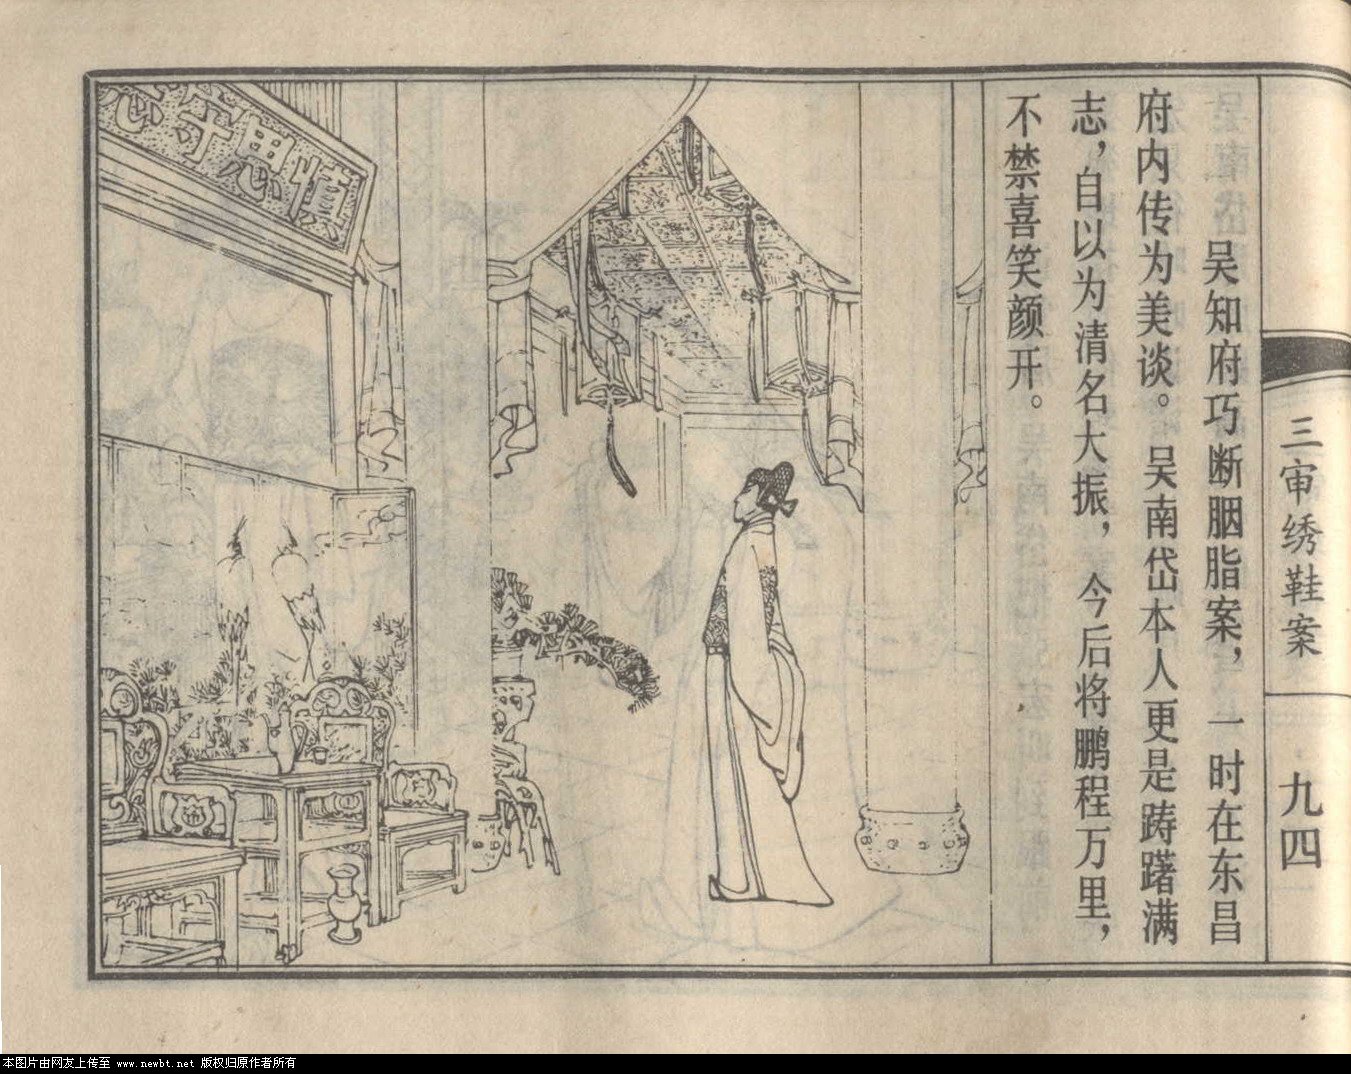 吴知府巧断胭脂案，一时在东昌
府内传为美谈。吴南岱本人更是踌躇满
志，自以为清名大振，今后将鹏程万里，
不禁喜笑颜开。
三审绣鞋案
九四
慎思守
本图片由网友上传至 www.newbt.net 版权归原作者所有